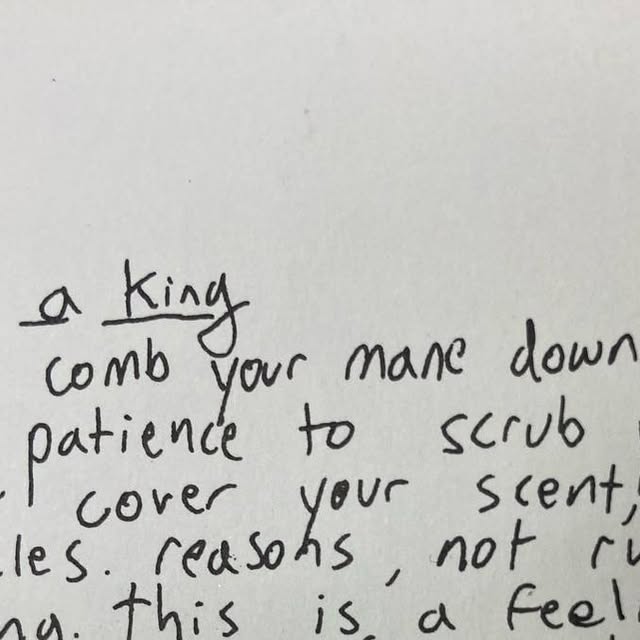 a king
comb your mane down
patience to scrub
cover your scent,
reasons, not
this is a